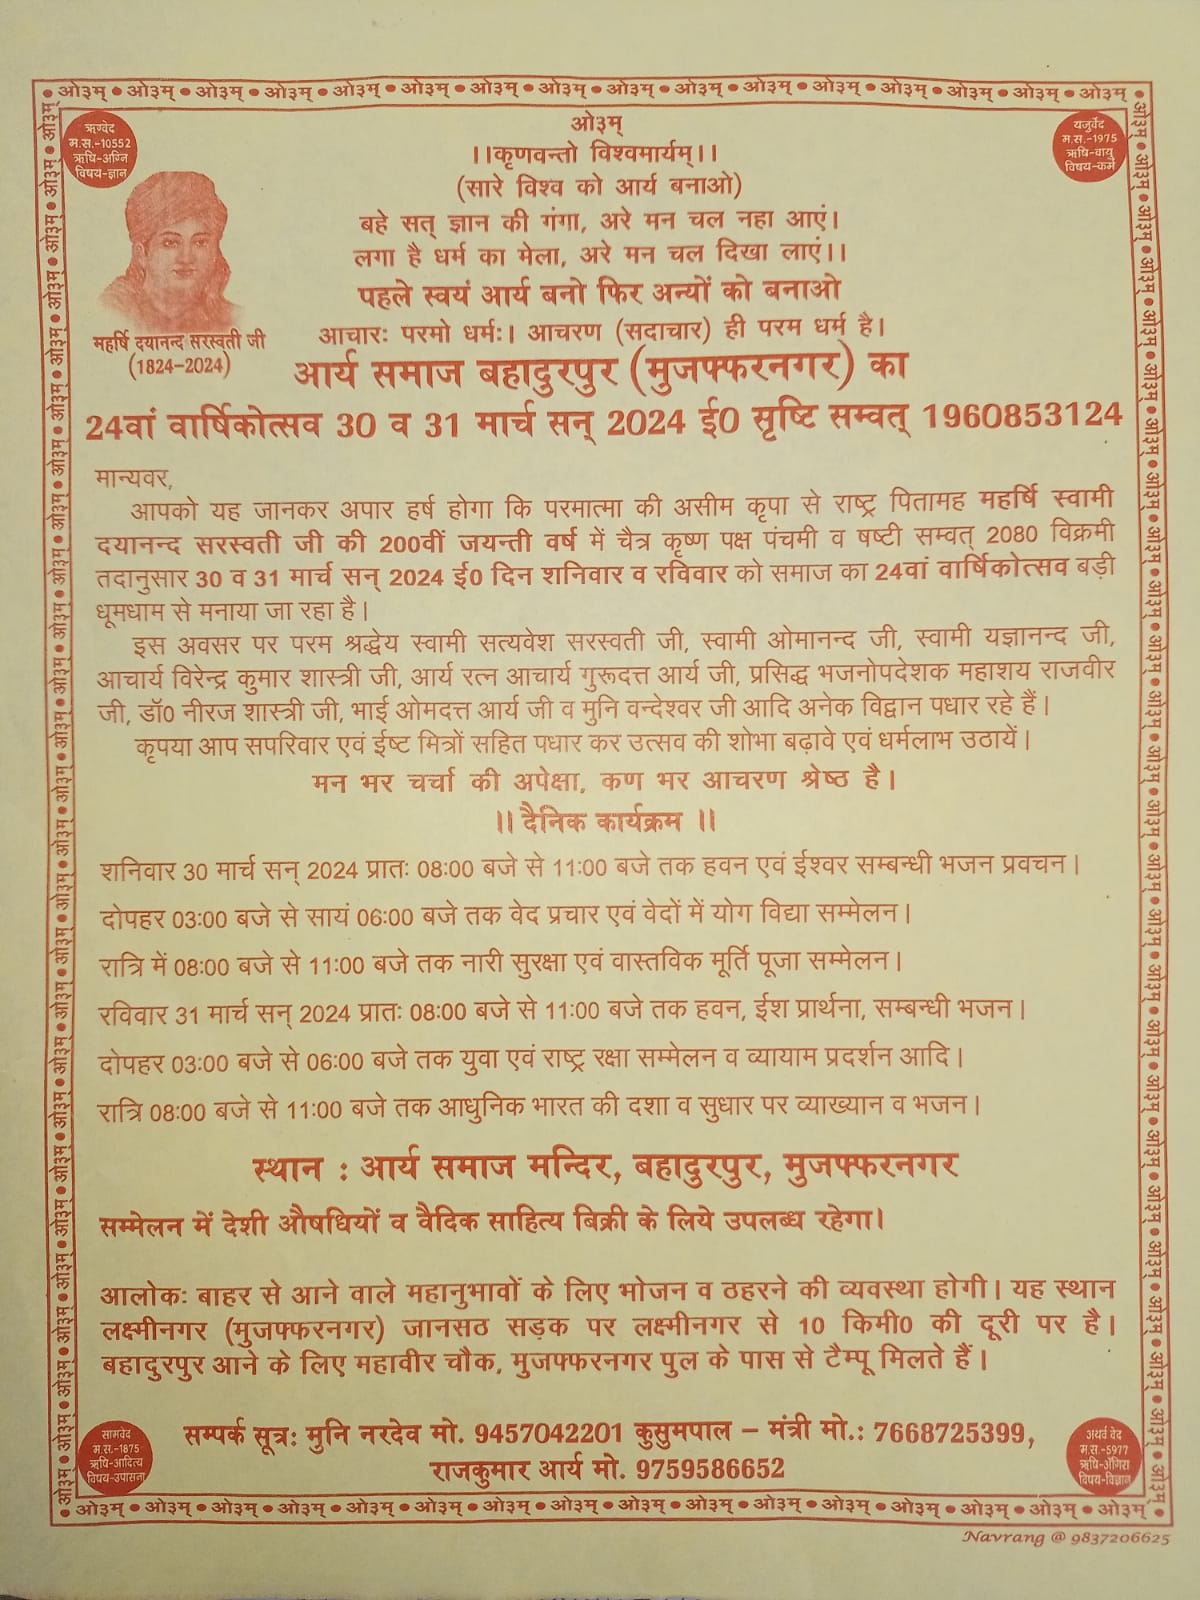 • ओ३म् • ओ३म् • ओ३म् • ओ३म् • ओ३म् • ओ३म् • ओ३म् • ओ३म् • ओ३म् • ओ३म् • ओ३म् • ओ३म् • ओ३म् • ओ३म् • ओ३म् • ओ३म् •
ऋग्वेद
म.स.-10552
ऋषि-अग्नि
विषय-ज्ञान
यजुर्वेद
म.स.-1975
ऋषि-वायु
विषय-कर्म
ओ३म्
।।कृणवन्तो विश्वमार्यम्।।
(सारे विश्व को आर्य बनाओ)
बहे सत् ज्ञान की गंगा, अरे मन चल नहा आएं।
लगा है धर्म का मेला, अरे मन चल दिखा लाएं।।
पहले स्वयं आर्य बनो फिर अन्यों को बनाओ
आचारः परमो धर्मः। आचरण (सदाचार) ही परम धर्म है।
महर्षि दयानन्द सरस्वती जी
(1824-2024)
आर्य समाज बहादुरपुर (मुजफ्फरनगर) का
24वां वार्षिकोत्सव 30 व 31 मार्च सन् 2024 ई0 सृष्टि सम्वत् 1960853124
मान्यवर,
आपको यह जानकर अपार हर्ष होगा कि परमात्मा की असीम कृपा से राष्ट्र पितामह महर्षि स्वामी
दयानन्द सरस्वती जी की 200वीं जयन्ती वर्ष में चैत्र कृष्ण पक्ष पंचमी व षष्टी सम्वत् 2080 विक्रमी
तदानुसार 30 व 31 मार्च सन् 2024 ई0 दिन शनिवार व रविवार को समाज का 24वां वार्षिकोत्सव बड़ी
धूमधाम से मनाया जा रहा है।
इस अवसर पर परम श्रद्धेय स्वामी सत्यवेश सरस्वती जी, स्वामी ओमानन्द जी, स्वामी यज्ञानन्द जी,
आचार्य विरेन्द्र कुमार शास्त्री जी, आर्य रत्न आचार्य गुरूदत्त आर्य जी, प्रसिद्ध भजनोपदेशक महाशय राजवीर
जी, डॉ0 नीरज शास्त्री जी, भाई ओमदत्त आर्य जी व मुनि वन्देश्वर जी आदि अनेक विद्वान पधार रहे हैं।
कृपया आप सपरिवार एवं ईष्ट मित्रों सहित पधार कर उत्सव की शोभा बढ़ावे एवं धर्मलाभ उठायें।
मन भर चर्चा की अपेक्षा, कण भर आचरण श्रेष्ठ है।
।। दैनिक कार्यक्रम ।।
शनिवार 30 मार्च सन् 2024 प्रातः 08:00 बजे से 11:00 बजे तक हवन एवं ईश्वर सम्बन्धी भजन प्रवचन।
दोपहर 03:00 बजे से सायं 06:00 बजे तक वेद प्रचार एवं वेदों में योग विद्या सम्मेलन।
रात्रि में 08:00 बजे से 11:00 बजे तक नारी सुरक्षा एवं वास्तविक मूर्ति पूजा सम्मेलन।
रविवार 31 मार्च सन् 2024 प्रातः 08:00 बजे से 11:00 बजे तक हवन, ईश प्रार्थना, सम्बन्धी भजन।
दोपहर 03:00 बजे से 06:00 बजे तक युवा एवं राष्ट्र रक्षा सम्मेलन व व्यायाम प्रदर्शन आदि।
रात्रि 08:00 बजे से 11:00 बजे तक आधुनिक भारत की दशा व सुधार पर व्याख्यान व भजन।
स्थान : आर्य समाज मन्दिर, बहादुरपुर, मुजफ्फरनगर
सम्मेलन में देशी औषधियों व वैदिक साहित्य बिक्री के लिये उपलब्ध रहेगा।
आलोकः बाहर से आने वाले महानुभावों के लिए भोजन व ठहरने की व्यवस्था होगी। यह स्थान
लक्ष्मीनगर (मुजफ्फरनगर) जानसठ सड़क पर लक्ष्मीनगर से 10 किमी0 की दूरी पर है।
बहादुरपुर आने के लिए महावीर चौक, मुजफ्फरनगर पुल के पास से टैम्पू मिलते हैं।
सम्पर्क सूत्र: मुनि नरदेव मो. 9457042201 कुसुमपाल – मंत्री मो.: 7668725399,
राजकुमार आर्य मो. 9759586652
सामवेद
म.स.-1875
ऋषि-आदित्य
विषय-उपासना
अथर्व वेद
म.स.-5977
ऋषि-अँगिरा
विषय-विज्ञान
• ओ३म् • ओ३म् • ओ३म् • ओ३म् • ओ३म् • ओ३म् • ओ३म् • ओ३म् • ओ३म् • ओ३म् • ओ३म् • ओ३म् • ओ३म् • ओ३म् • ओ३म् • ओ३म् •
Navrang @ 9837206625